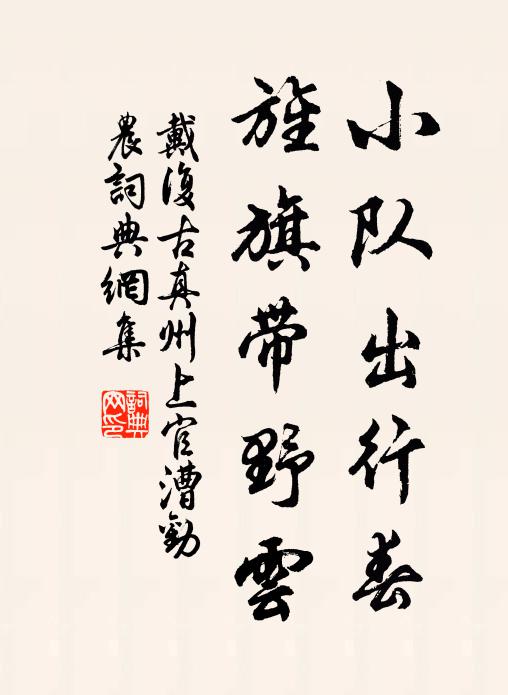 小队出行春
旌旗带野雲
戴復古真州上官漕勸
農詞典網集
詞典
网印